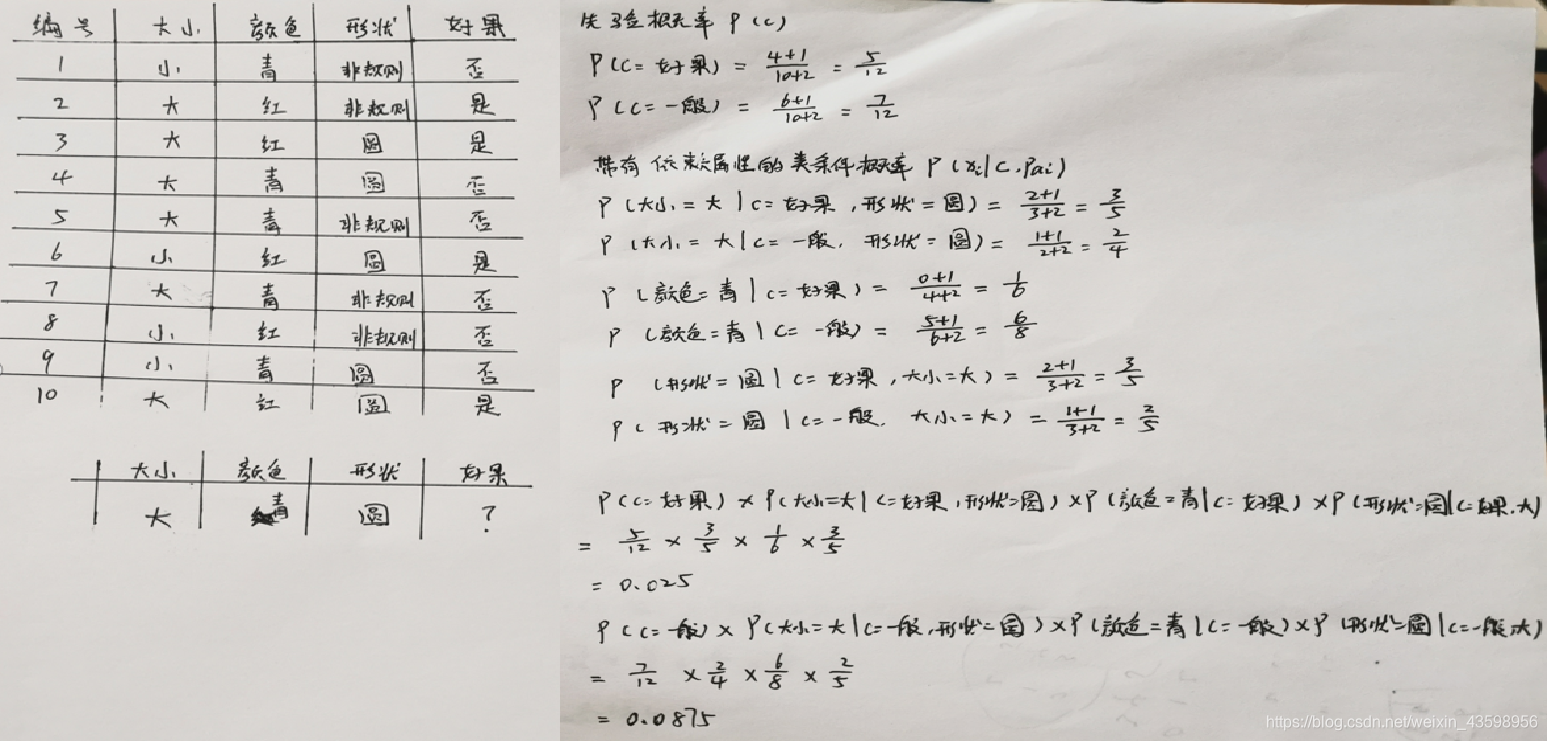 编号 大小 颜色 形状 好果
1 小 青 非规则 否
2 大 红 非规则 是
3 大 红 圆 是
4 大 青 圆 否
5 大 青 非规则 否
6 小 红 圆 是
7 大 青 非规则 否
8 小 红 非规则 否
9 小 青 圆 否
10 大 红 圆 是
大小 颜色 形状 好果
大 青 圆 ?
先验概率 P(c)
P(C=好果) = 4+1/10+2 = 5/12
P(C=一般) = 6+1/10+2 = 7/12
带有依赖属性的类条件概率 P(xi|C,Pai)
P(大小=大|C=好果,形状=圆) = 2+1/3+2 = 3/5
P(大小=大|C=一般,形状=圆) = 1+1/2+2 = 2/4
P(颜色=青|C=好果) = 0+1/4+2 = 1/6
P(颜色=青|C=一般) = 5+1/6+2 = 6/8
P(形状=圆|C=好果,大小=大) = 2+1/3+2 = 3/5
P(形状=圆|C=一般,大小=大) = 1+1/3+2 = 2/5
P(C=好果)×P(大小=大|C=好果,形状=圆)×P(颜色=青|C=好果)×P(形状=圆|C=好果,大)
= 5/12 × 3/5 × 1/6 × 3/5
= 0.025
P(C=一般)×P(大小=大|C=一般,形状=圆)×P(颜色=青|C=一般)×P(形状=圆|C=一般,大)
= 7/12 × 2/4 × 6/8 × 2/5
= 0.0875
https://blog.csdn.net/weixin_43598956